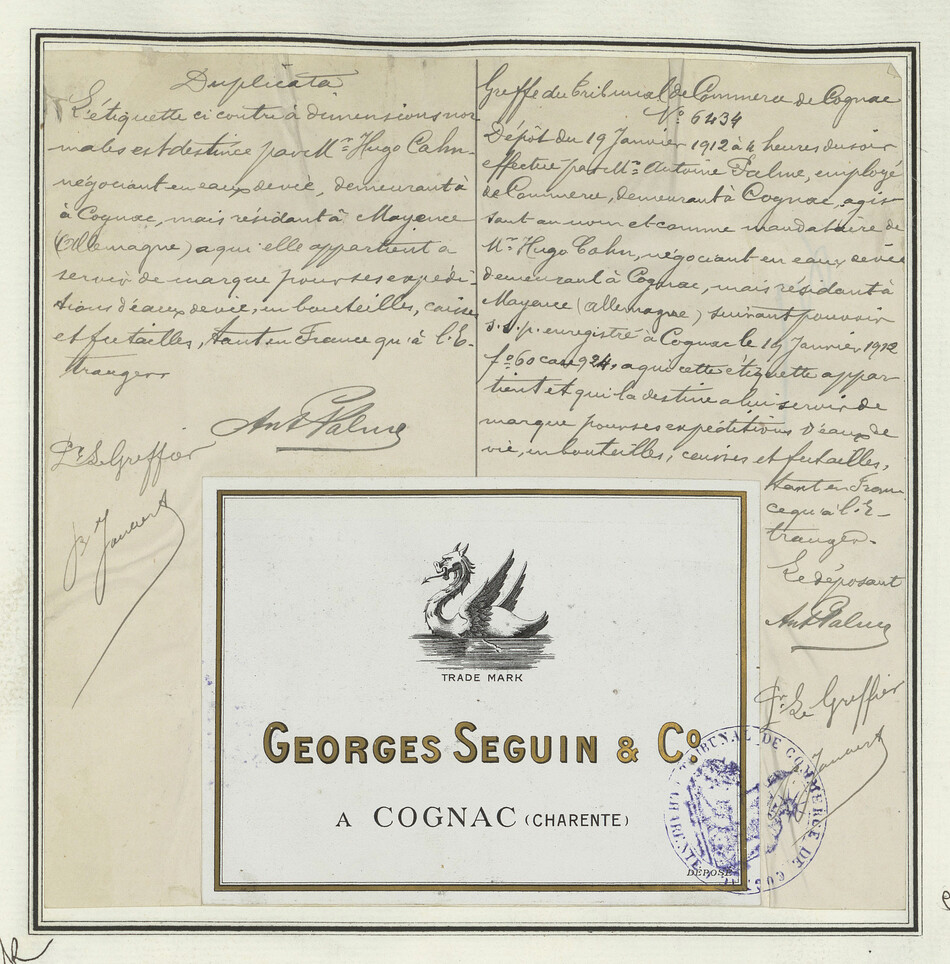 Duplicata
L'étiquette ci contre à dimensions nor
males est destinée par Mr Hugo Cahn
négociant en eaux de vie, demeurant à
à Cognac, mais résidant à Mayence
(Allemagne) a qui elle appartient a
servir de marque pour ses expédi-
tions d'eaux de vie, en bouteilles, caisses
et futailles, tant en France qu'à l'E-
tranger
Ant Palme
Pr Le Greffier
Greffe du Tribunal de Commerce de Cognac
No 6434
Dépôt du 19 Janvier 1912 à 4 heures du soir
effectué par Mr Antoine Palme, employé
de Commerce, demeurant à Cognac, agis
sant au nom et comme mandataire de
Mr Hugo Cahn, négociant en eaux de vie
demeurant à Cognac, mais résidant à
Mayence (allemagne) suivant pouvoir
s.s.p. enregistré à Cognac le 19 Janvier 1912
fo 60 case 924, a qui cette étiquette appar-
tient et qui la destine a lui servir de
marque pour ses expéditions d'eaux de
vie, en bouteilles, caisses et futailles,
tant en Fran
ce qu'à l'E-
tranger.
Le déposant
Ant Palme
Pr Le Greffier
TRADE MARK
GEORGES SEGUIN & Co
A COGNAC (CHARENTE)
DÉPOSÉ
TRIBUNAL DE COMMERCE DE COGNAC
CHARENTE